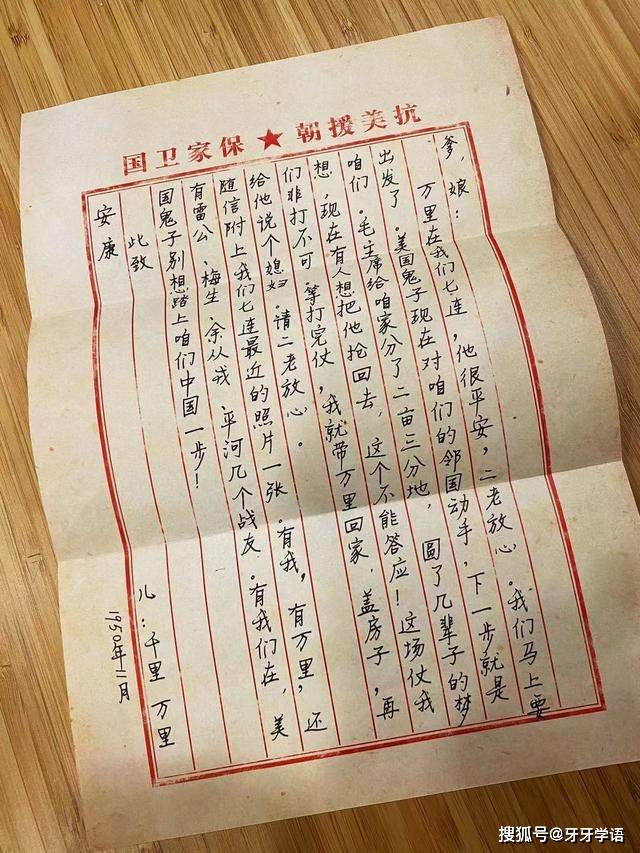 抗美援朝★保家卫国
爹，娘：
万里在我们七连，他很平安，二老放心。我们马上要
出发了。美国鬼子现在对咱们的邻国动手，下一步就是
咱们。毛主席给咱家分了二亩三分地，圆了几辈子的梦
想，现在有人想把他抢回去，这个不能答应！这场仗我
们非打不可，等打完仗，我就带万里回家，盖房子，再
给他说个媳妇，请二老放心。
随信附上我们七连最近的照片一张。有我，有万里，还
有雷公、梅生、余从戎、平河几个战友。有我们在，美
国鬼子别想踏上咱们中国一步！
此致
安康
儿：千里 万里
1950年11月
搜狐号@牙牙学语